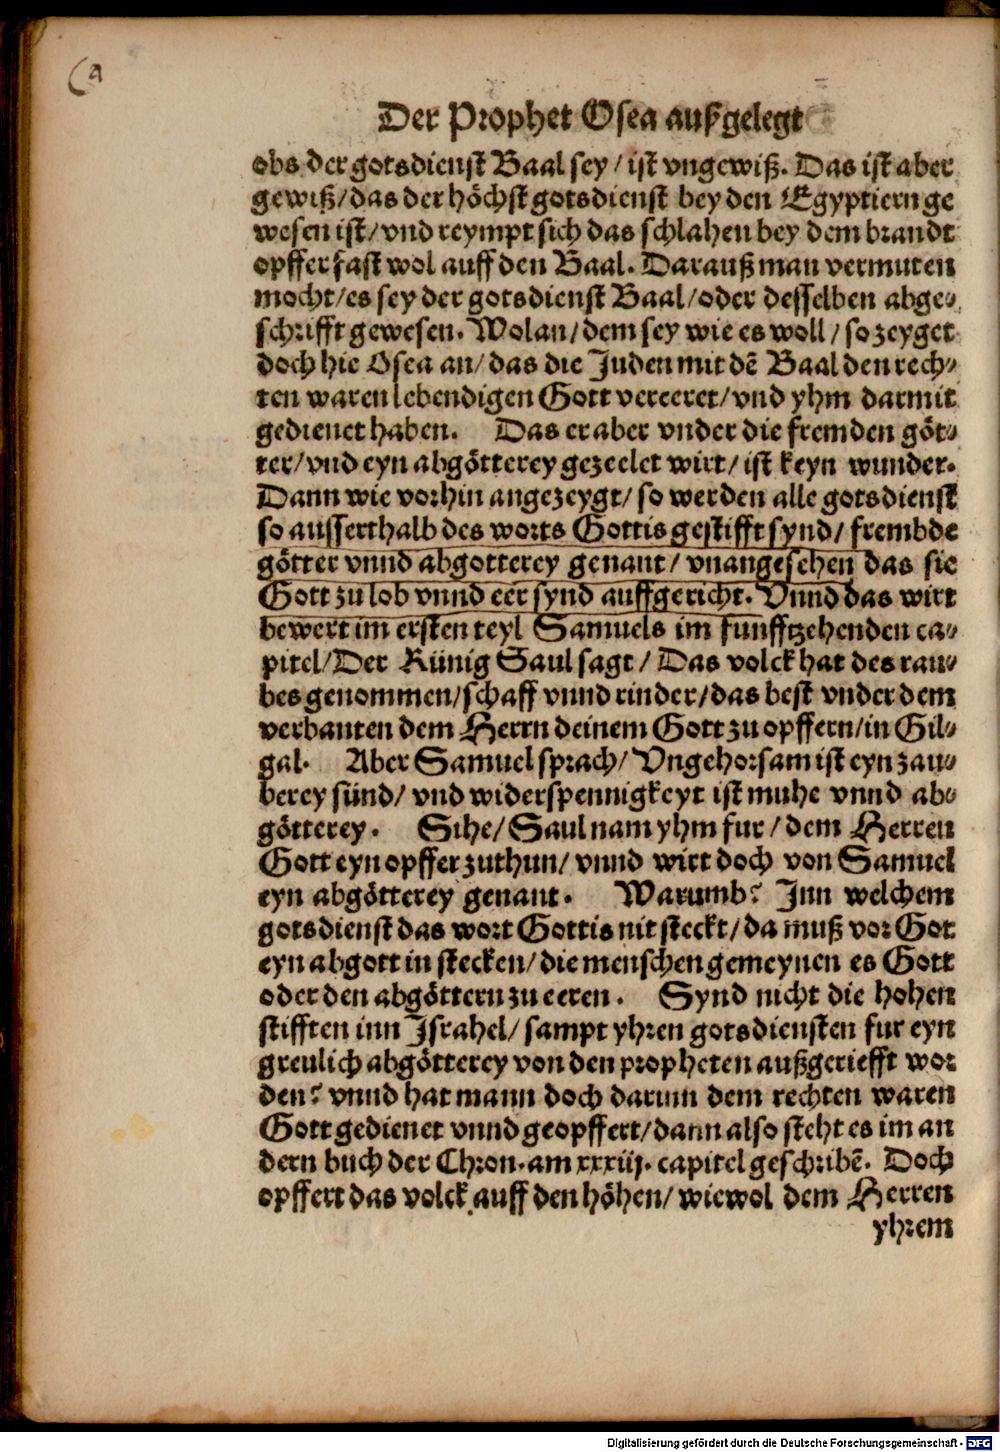 (9
Der Prophet Osea außgelegt
obs der gotsdienst Baal sey / ist vngewiß. Das ist aber
gewiß/das der höchst gotsdienst bey den Egyptiern ge
wesen ist/vnd reympt sich das schlahen bey dem brandt
opffer fast wol auff den Baal. Darauß man vermuten
mocht/es sey der gotsdienst Baal/oder desselben abge⸗
schrifft gewesen. Wolan/dem sey wie es woll / so zeyget
doch hie Osea an/das die Juden mit dē Baal den rech⸗
ten waren lebendigen Gott vereeret/vnd yhm darmit
gedienet haben. Das er aber vnder die fremden göt⸗
ter/vnd eyn abgötterey gezeelet wirt/ist keyn wunder.
Dann wie vorhin angezeygt/ so werden alle gotsdienst
so ausserthalb des worts Gottis gestifft synd/ frembde
götter vnnd abgotterey genant/ vnangesehen das sie
Gott zu lob vnnd eer synd auffgericht. Vnnd das wirt
bewert im ersten teyl Samuels im funfftzehenden ca⸗
pitel/Der Künig Saul sagt / Das volck hat des rau⸗
bes genommen/schaff vnnd rinder/das best vnder dem
verbanten dem Herrn deinem Gott zu opffern/in Gil⸗
gal. Aber Samuel sprach/ Vngehorsam ist eyn zau⸗
berey sünd/ vnd widerspennigkeyt ist muhe vnnd ab⸗
götterey. Sihe/ Saul nam yhm fur / dem Herren
Gott eyn opffer zuthun/ vnnd wirt doch von Samuel
eyn abgötterey genant. Warumb? Inn welchem
gotsdienst das wort Gottis nit steckt/da muß vor Got
eyn abgott in stecken/die menschen gemeynen es Gott
oder den abgöttern zu eeren. Synd nicht die hohen
stifften inn Israhel/ sampt yhren gotsdiensten fur eyn
greulich abgötterey von den propheten außgeriefft wor
den? vnnd hat mann doch darinn dem rechten waren
Gott gedienet vnnd geopffert/dann also steht es im an
dern buch der Chron. am xxxiij. capitel geschribē. Doch
opffert das volck auff den höhen/ wiewol dem Herren
yhrem
Digitalisierung gefördert durch die Deutsche Forschungsgemeinschaft - DFG